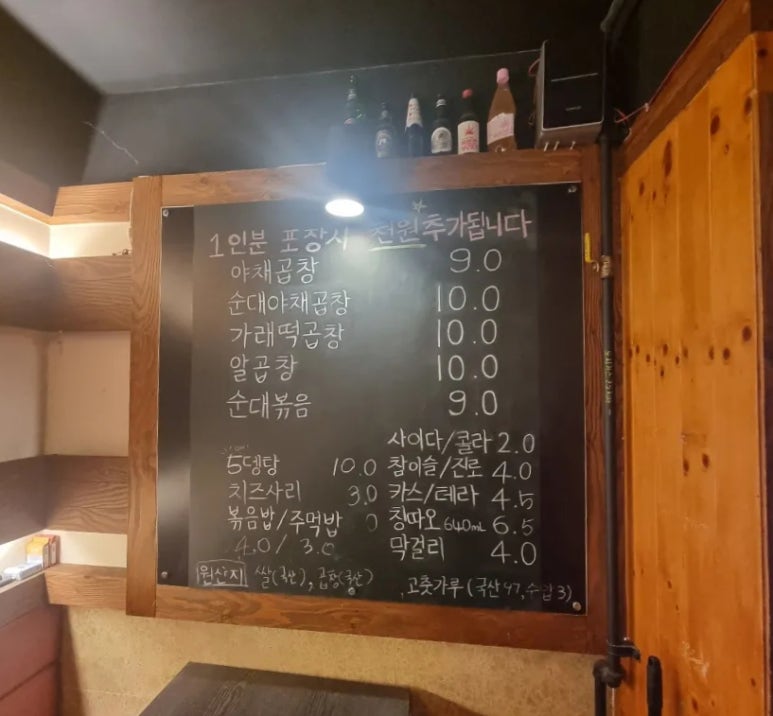 1인분 포장시 천원 추가됩니다
야채곱창 9.0
순대야채곱창 10.0
가래떡곱창 10.0
알곱창 10.0
순대볶음 9.0
5뎅탕 10.0
치즈사리 3.0
볶음밥/주먹밥
4.0 / 3.0
사이다/콜라 2.0
참이슬/진로 4.0
카스/테라 4.5
칭따오 640mL 6.5
막걸리 4.0
원산지 쌀(국산), 곱창(국산)
고춧가루 (국산 97, 수입 3)